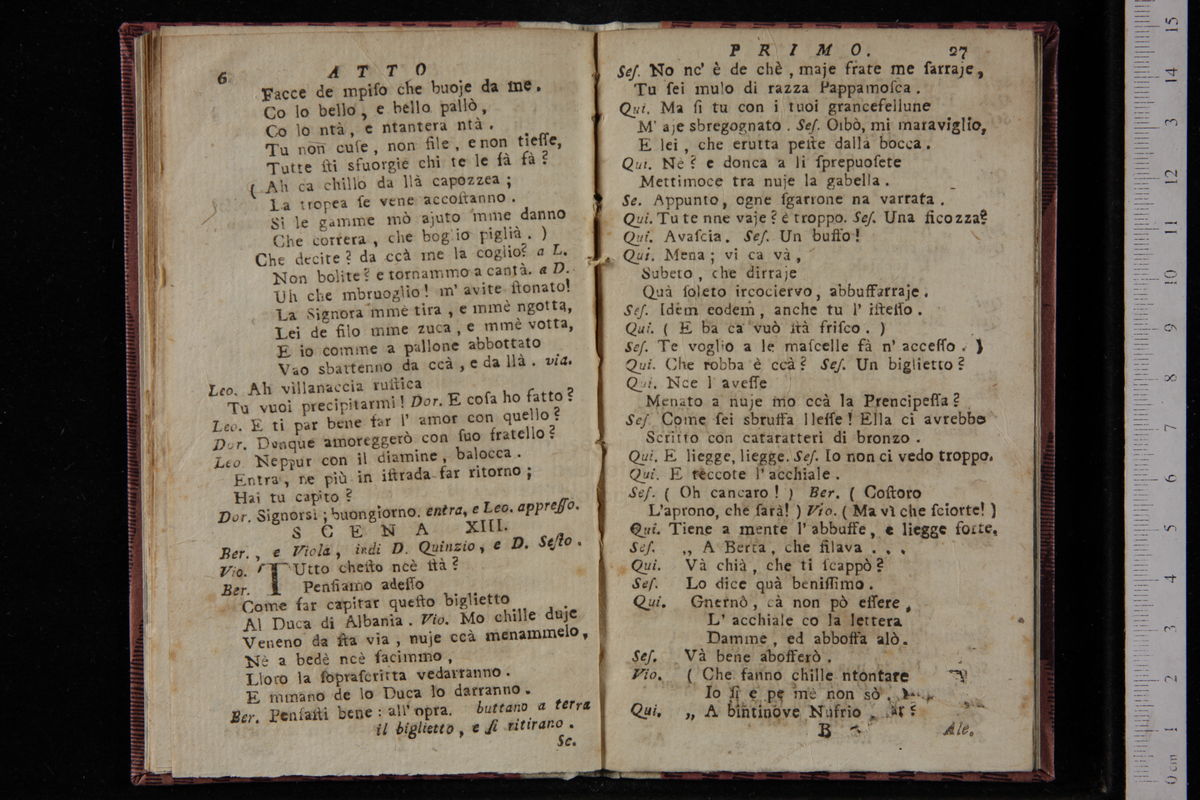 6 A T T O
Facce de mpiso che buoje da me.
Co lo bello, e bello pallò,
Co lo ntà, e ntantera ntà.
Tu non cuſe, non file, e non tieſſe,
Tutte ſti sfuorgie chi te le fà fà?
( Ah ca chillo da llà capozzea;
La tropea ſe vene accoſtanno.
Si le gamme mò ajuto mme danno
Che correra, che bog io piglià. )
Che decite? da ccà me la coglio? a L.
Non bolite? e tornammo a cantà. a D.
Uh che mbruoglio! m' avite ſtonato!
La Signora mme tira, e mmè ngotta,
Lei de filo mme zuca, e mmè votta,
E io comme a pallone abbottato
Vao sbattenno da ccà, e da llà. via.
Leo. Ah villanaccia ruſtica
Tu vuoi precipitarmi! Dor. E coſa ho fatto?
Leo. E ti par bene far l' amor con quello?
Dor. Donque amoreggerò con ſuo fratello?
Leo Neppur con il diamine, balocca.
Entra, ne più in iſtrada far ritorno;
Hai tu capito?
Dor. Signorsì; buongiorno. entra, e Leo. appreſſo.
S C E N A XIII.
Ber., e Viola, indi D. Quinzio, e D. Seſto.
Vio. TUtto cheſto ncè ſtà?
Ber. Penſiamo adeſſo
Come far capitar queſto biglietto
Al Duca di Albania. Vio. Mo chille duje
Veneno da ſta via, nuje ccà menammelo,
Nè a bedè ncè facimmo,
Lloro la ſopraſcritta vedarranno.
E mmano de lo Duca lo darranno.
Ber. Penſaſti bene: all' opra. buttano a terra
il biglietto, e ſi ritirano.
Sc.
P R I M O. 27
Seſ. No nc' è de chè, maje frate me ſarraje,
Tu ſei mulo di razza Pappamoſca.
Qui. Ma ſi tu con i tuoi granceſellune
M' aje sbregognato. Seſ. Oibò, mi maraviglio,
E lei, che erutta peſte dalla bocca.
Qui. Nè? e donca a li ſprepuoſete
Mettimoce tra nuje la gabella.
Se. Appunto, ogne ſgarrone na varrata.
Qui. Tu te nne vaje? è troppo. Seſ. Una ficozza?
Qui. Avaſcia. Seſ. Un buffo!
Qui. Mena; vi ca và,
Subeto, che dirraje
Quà ſoleto ircociervo, abbuffarraje.
Seſ. Idem eodem, anche tu l' iſteſſo.
Qui. ( E ba ca vuò ſtà friſco. )
Seſ. Te voglio a le maſcelle fà n' acceſſo. )
Qui. Che robba è ccà? Seſ. Un biglietto?
Qui. Nce l aveſſe
Menato a nuje mo ccà la Prencipeſſa?
Seſ Come ſei sbruffa lleſſe! Ella ci avrebbe
Scritto con cataratteri di bronzo.
Qui. E liegge, liegge. Seſ. Io non ci vedo troppo.
Qui. E tèccote l' acchiale.
Seſ. ( Oh cancaro! ) Ber. ( Coſtoro
L'aprono, che ſarà! ) Vio. ( Ma vì che ſciorte! )
Qui. Tiene a mente l' abbuffe, e liegge forte.
Seſ. „ A Berta, che filava . . .
Qui. Và chià, che ti ſcappò?
Seſ. Lo dice quà beniſſimo.
Qui. Gnernò, cà non pò eſſere,
L' acchiale co la lettera
Damme, ed abboffa alò.
Seſ. Và bene abofferò.
Vio. ( Che fanno chille ntontare
Io ſi e pe mè non sò.
Qui. „ A bintinove Nufrio
B Ale.